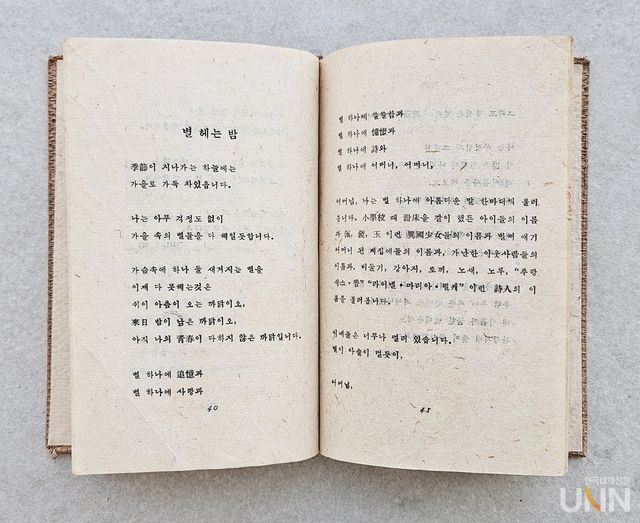 별 헤는 밤
季節이 지나가는 하늘에는
가을로 가득 차있읍니다.
나는 아무 걱정도 없이
가을 속의 별들을 다 헤일듯합니다.
가슴속에 하나 둘 새겨지는 별을
이제 다 못헤는것은
쉬이 아츰이 오는 까닭이오,
來日 밤이 남은 까닭이오,
아직 나의 靑春이 다하지 않은 까닭입니다.
별 하나에 追憶과
별 하나에 사랑과
40
별 하나에 쓸쓸함과
별 하나에 憧憬과
별 하나에 詩와
별 하나에 어머니, 어머니,
어머님, 나는 별 하나에 아름다운 말 한마디씩 불러
봅니다. 小學校 때 冊床을 같이 했든 아이들의 이름
과 佩, 鏡, 玉 이런 異國少女들의 이름과 벌써 애기
어머니 된 계집애들의 이름과, 가난한 이웃사람들의
이름과, 비둘기, 강아지, 토끼, 노새, 노루, "푸랑
시스·쨤" "라이넬·마리아·릴케" 이런 詩人의 이
름을 불러봅니다.
이네들은 너무나 멀리 있습니다.
별이 아슬이 멀듯이,
어머님,
41
한국대학신문
UNN